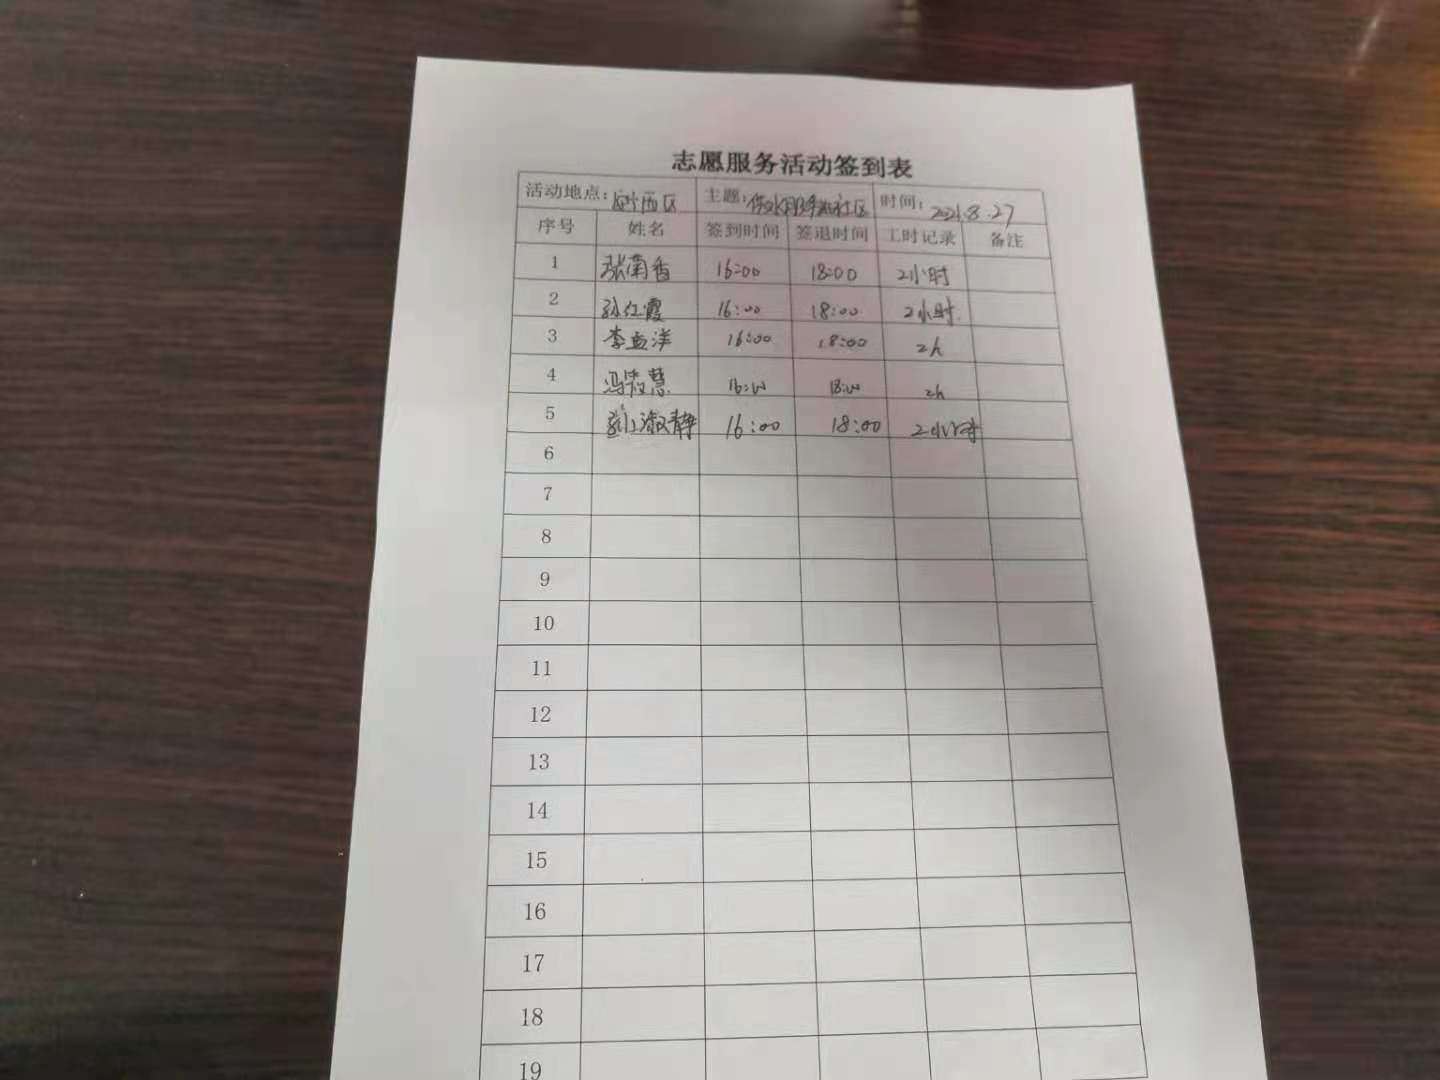 志愿服务活动签到表
活动地点: 西区 主题: 供水服务进社区 时间: 2021.8.27
序号 姓名 签到时间 签退时间 工时记录 备注
1 张南香 16:00 18:00 2小时
2 孙红霞 16:00 18:00 2小时
3 李孟洋 16:00 18:00 2h
4 冯慧 16:00 18:00 2h
5 刘淑静 16:00 18:00 2小时
6
7
8
9
10
11
12
13
14
15
16
17
18
19